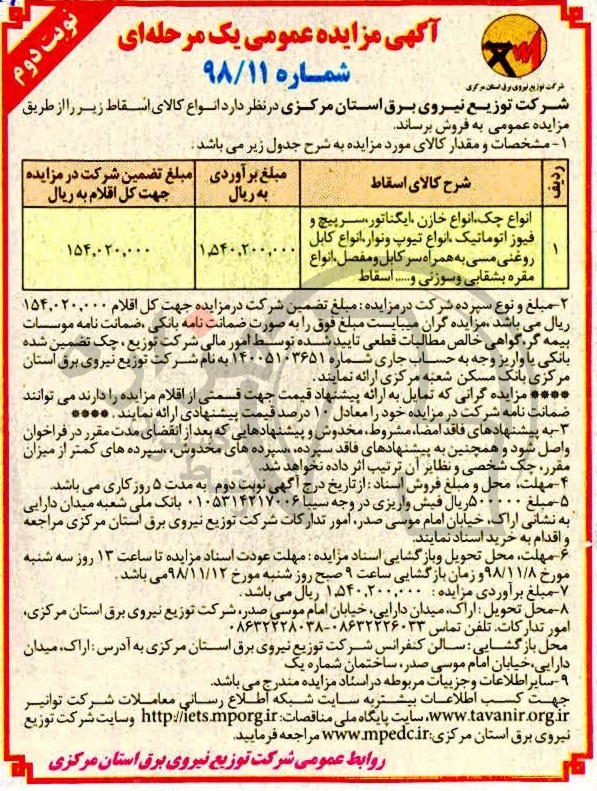 نوبت دوم
آگهی مزایده عمومی یک مرحله‌ای
شماره ۹۸/۱۱
شرکت توزیع نیروی برق استان مرکزی
شرکت توزیع نیروی برق استان مرکزی در نظر دارد انواع کالای اسقاط زیر را از طریق
مزایده عمومی به فروش برساند.
۱- مشخصات و مقدار کالای مورد مزایده به شرح جدول زیر می باشد.
ردیف
شرح کالای اسقاط
مبلغ برآوردی به ریال
مبلغ تضمین شرکت در مزایده جهت کل اقلام به ریال
۱
انواع چک،انواع خازن ،ایگناتور،سرپیچ و
فیوز اتوماتیک ،انواع تیوپ ونوار،انواع کابل
روغنی مسی به همراه سرکابل ومفصل،انواع
مقره بشقابی وسوزنی و..... اسقاط
۱,۵۴۰,۲۰۰,۰۰۰
۱۵۴,۰۲۰,۰۰۰
۲-مبلغ و نوع سپرده شرکت درمزایده : مبلغ تضمین شرکت درمزایده جهت کل اقلام ۱۵۴,۰۲۰,۰۰۰
ریال می باشد ،مزایده گران میبایست مبلغ فوق را به صورت ضمانت نامه بانکی ،ضمانت نامه موسسات
بیمه گر،گواهی خالص مطالبات قطعی تایید شده توسط امور مالی شرکت توزیع ، چک تضمین شده
بانکی یا واریز وجه به حساب جاری شماره ۱۴۰۰۵۱۰۳۶۵۱ به نام شرکت توزیع نیروی برق استان
مرکزی بانک مسکن شعبه مرکزی ارائه نمایند.
**** مزایده گرانی که تمایل به ارائه پیشنهاد قیمت جهت قسمتی از اقلام مزایده را دارند می توانند
ضمانت نامه شرکت در مزایده خود را معادل ۱۰ درصد قیمت پیشنهادی ارائه نمایند . ****
۳-به پیشنهادهای فاقد امضا، مشروط، مخدوش و پیشنهادهایی که بعد از انقضای مدت مقرر در فراخوان
واصل شود و همچنین به پیشنهادهای فاقد سپرده ،سپرده های مخدوش، سپرده های کمتر از میزان
مقرر، چک شخصی و نظایر آن ترتیب اثر داده نخواهد شد.
۴-مهلت، محل و مبلغ فروش اسناد : از تاریخ درج آگهی نوبت دوم به مدت ۵ روز کاری می باشد.
۵-مبلغ ۵۰۰۰۰۰ ریال فیش واریزی در وجه سیبا ۰۱۰۵۳۱۴۲۱۷۰۰۶ بانک ملی شعبه میدان دارایی
به نشانی اراک، خیابان امام موسی صدر، امور تدارکات شرکت توزیع نیروی برق استان مرکزی مراجعه
و اقدام به خرید اسناد نمایند.
۶-مهلت، محل تحویل وبازگشایی اسناد مزایده : مهلت عودت اسناد مزایده تا ساعت ۱۳ روز سه شنبه
مورخ ۹۸/۱۱/۸ و زمان بازگشایی ساعت ۹ صبح روز شنبه مورخ ۹۸/۱۱/۱۲ می باشد .
۷-مبلغ برآوردی مزایده : ۱,۵۴۰,۲۰۰,۰۰۰ ریال می باشد .
۸-محل تحویل : اراک، میدان دارایی، خیابان امام موسی صدر، شرکت توزیع نیروی برق استان مرکزی،
امور تدارکات. تلفن تماس ۰۸۶۳۲۲۲۶۰۳۳-۰۸۶۳۲۲۲۸۰۳۸
محل بازگشایی : سالن کنفرانس شرکت توزیع نیروی برق استان مرکزی به آدرس : اراک، میدان
دارایی، خیابان امام موسی صدر، ساختمان شماره یک
۹-سایر اطلاعات و جزییات مربوطه در اسناد مزایده مندرج می باشد.
جهت کسب اطلاعات بیشتر به سایت شبکه اطلاع رسانی معاملات شرکت توانیر
www.tavanir.org.ir، سایت پایگاه ملی مناقصات: http://iets.mporg.ir وسایت شرکت توزیع
نیروی برق استان مرکزی:www.mpedc.ir مراجعه فرمایید.
روابط عمومی شرکت توزیع نیروی برق استان مرکزی